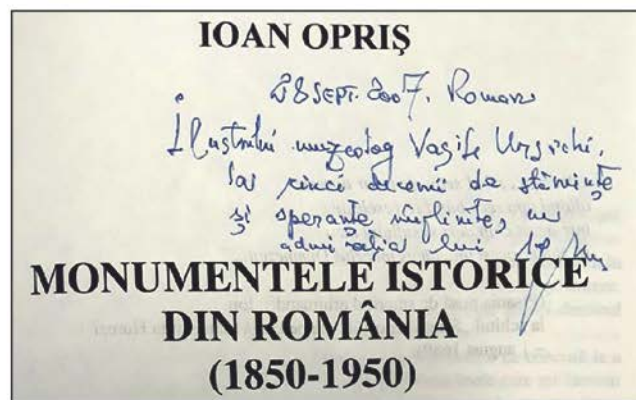 IOAN OPRIȘ
28 SEPT. 2007. Roman
Ilustrului muzeolog Vasile Ursachi,
la cinci decenii de
și speranțe
admirația lui
MONUMENTELE ISTORICE
DIN ROMÂNIA
(1850-1950)